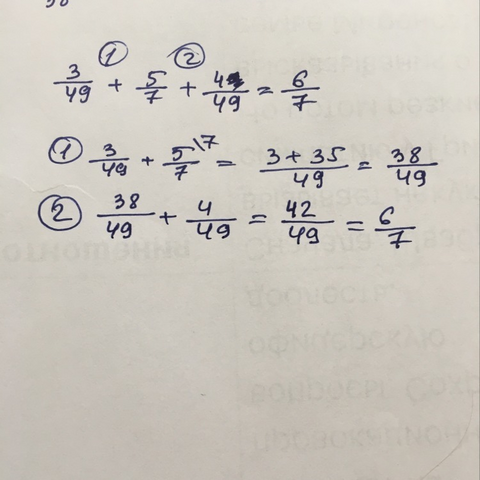 ① ②
3/49 + 5/7 + 4/49 = 6/7
① 3/49 + 5/7 \7 = 3 + 35/49 = 38/49
② 38/49 + 4/49 = 42/49 = 6/7